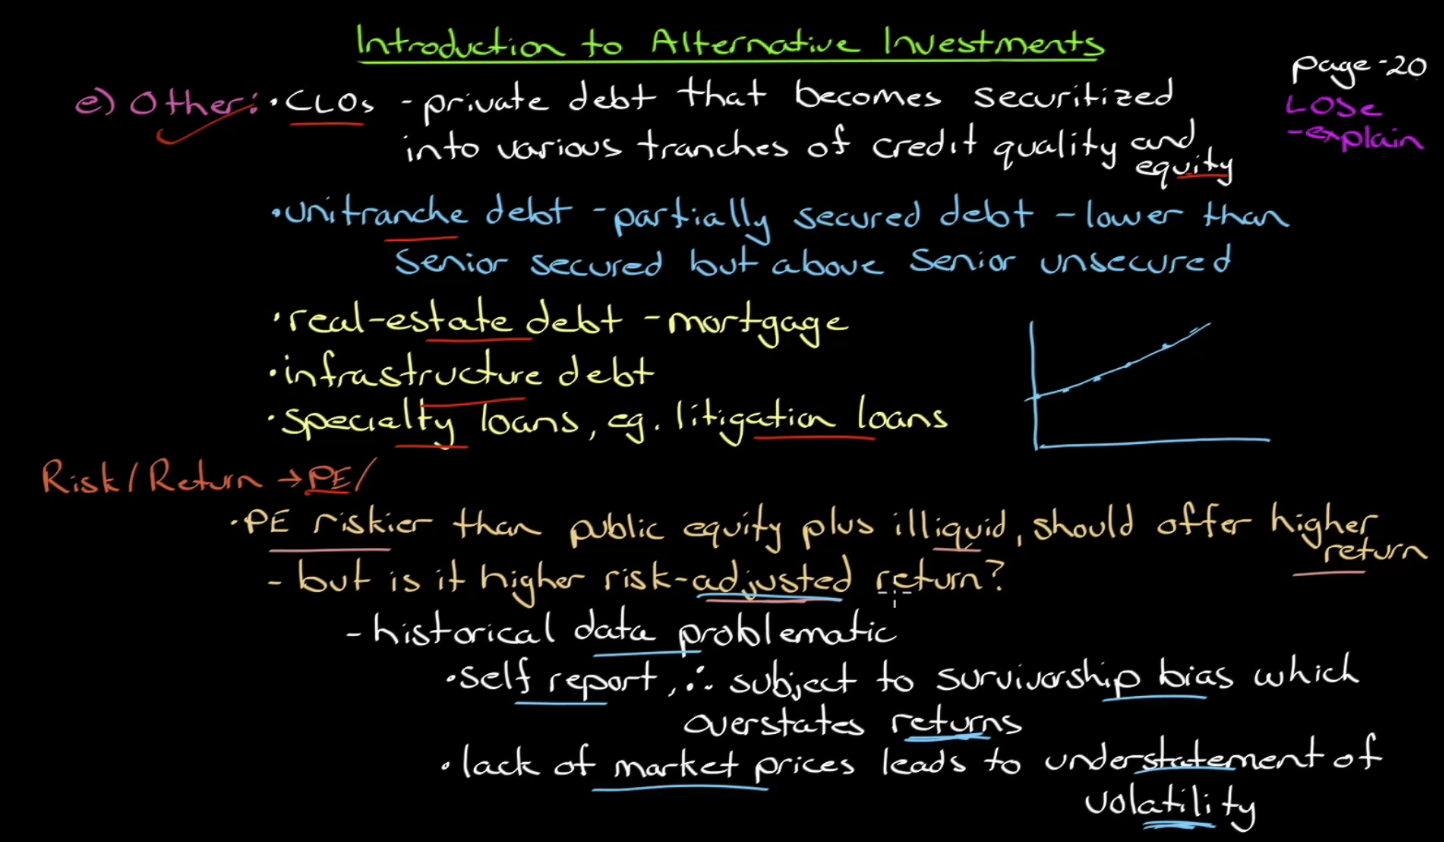 Introduction to Alternative Investments
page-20
LOSc
-explain
e) Other: • CLOs - private debt that becomes securitized
into various tranches of credit quality and
equity
• unitranche debt - partially secured debt - lower than
senior secured but above senior unsecured
• real-estate debt - mortgage
• infrastructure debt
• specialty loans, eg. litigation loans
Risk/Return → PE/
• PE riskier than public equity plus illiquid, should offer higher
return
- but is it higher risk-adjusted return?
- historical data problematic
• self report, ∴ subject to survivorship bias which
overstates returns
• lack of market prices leads to understatement of
volatility